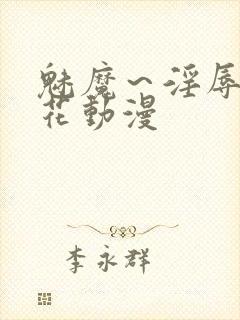 魅魔～淫辱
花動漫
李永群